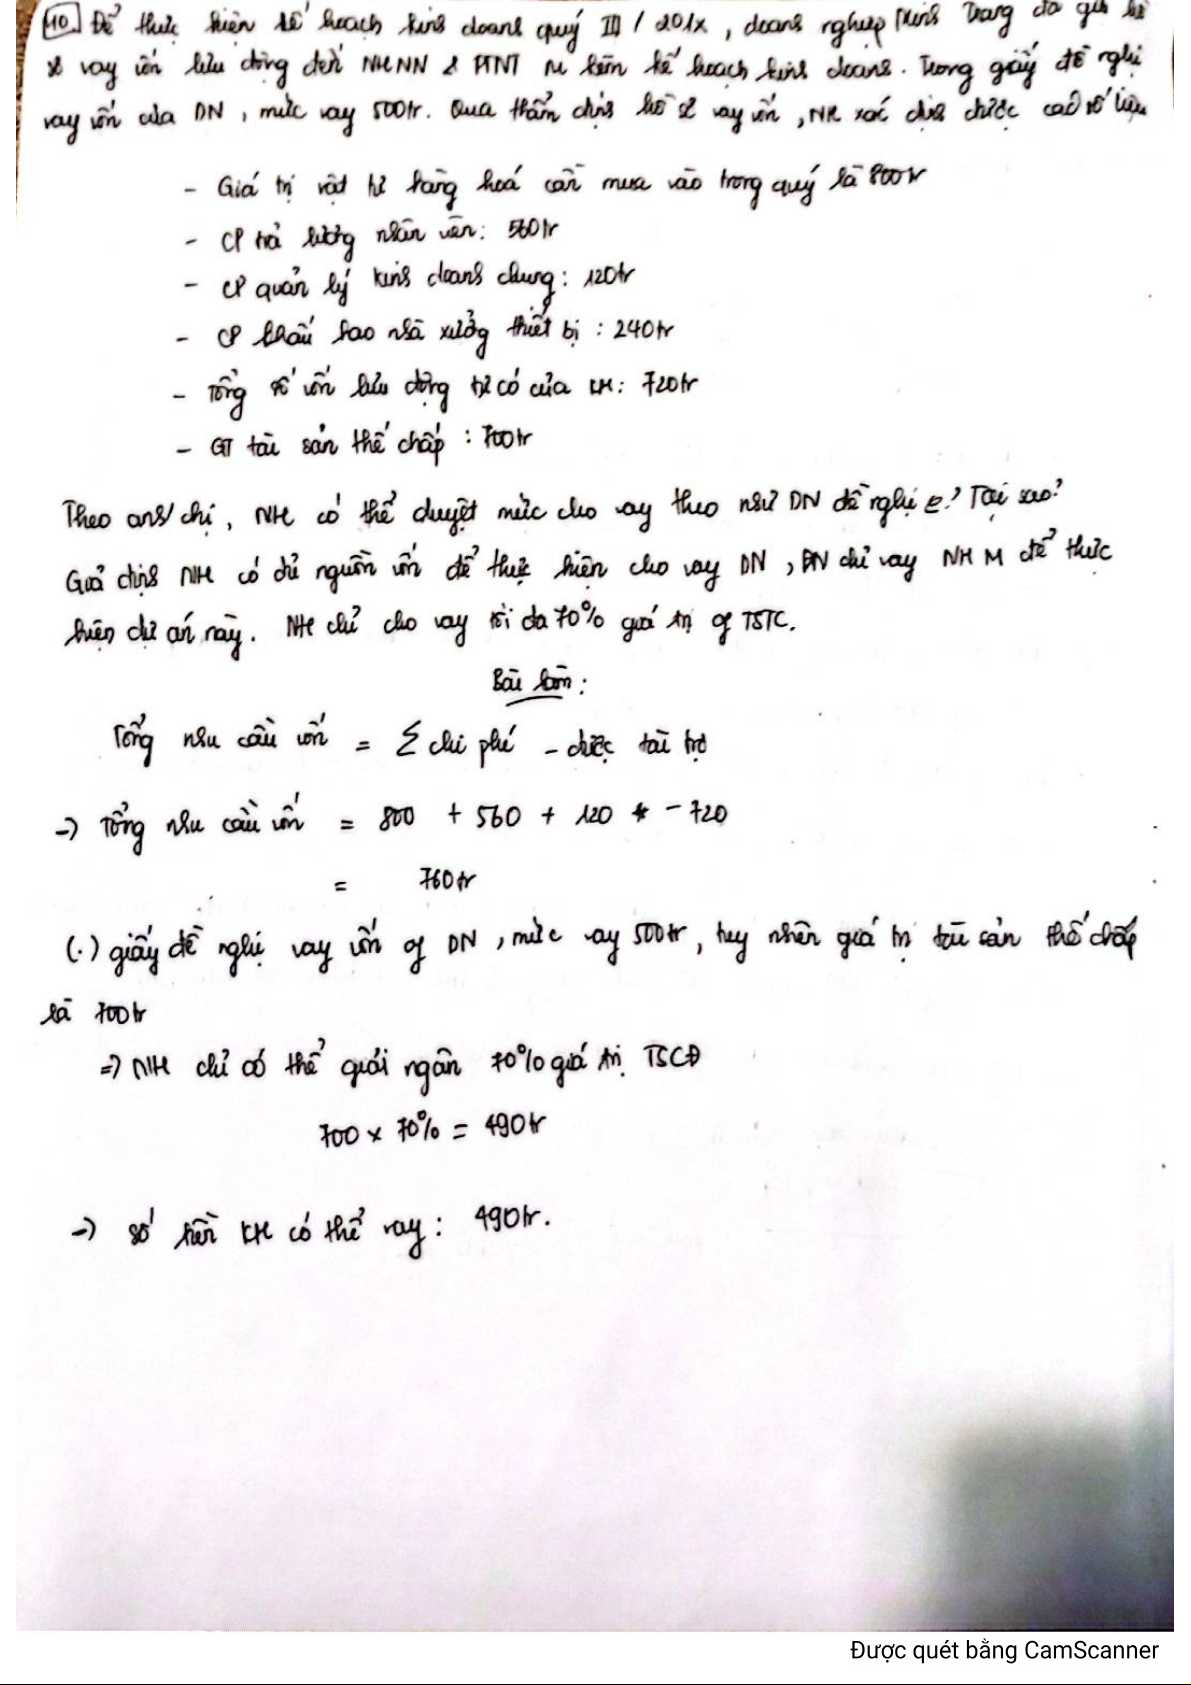 10. Để thực hiện kế hoạch kinh doanh quý III / 201x, doanh nghiệp Minh Trang đã gửi hồ
sơ vay vốn lưu động đến NHNN & PTNT M kèm kế hoạch kinh doanh. Trong giấy đề nghị
vay vốn của DN, mức vay 500tr. Qua thẩm định hồ sơ vay vốn, NH xác định được các số liệu
- Giá trị vật tư hàng hoá cần mua vào trong quý là 800tr
- CP trả lương nhân viên: 560tr
- CP quản lý kinh doanh chung: 120tr
- CP khấu hao nhà xưởng thiết bị : 240tr
- Tổng số vốn lưu động tự có của KH: 720tr
- GT tài sản thế chấp : 700tr
Theo anh/chị, NH có thể duyệt mức cho vay theo như DN đề nghị ? Tại sao?
Giả định NH có đủ nguồn vốn để thực hiện cho vay DN, DN chỉ vay NH M để thực
hiện dự án này. NH chỉ cho vay tối đa 70% giá trị of TSTC.
Bài làm:
Tổng nhu cầu vốn = Σ chi phí - được tài trợ
→ Tổng nhu cầu vốn = 800 + 560 + 120 - 720
= 760tr
(.) giấy đề nghị vay vốn of DN, mức vay 500tr, tuy nhiên giá trị tài sản thế chấp
là 700tr
⇒ NH chỉ có thể giải ngân 70% giá trị TSCĐ
700 x 70% = 490tr
→ Số tiền KH có thể vay: 490tr.
Được quét bằng CamScanner